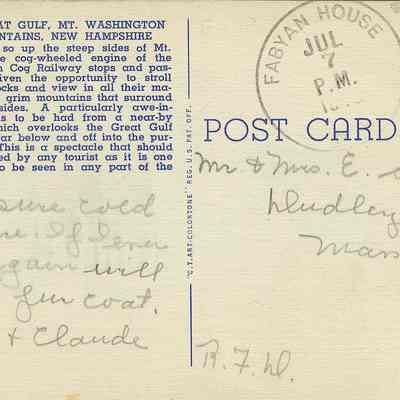 AT GULF, MT. WASHINGTON
NTAINS, NEW HAMPSHIRE
so up the steep sides of Mt.
e cog-wheeled engine of the
n Cog Railway stops and pas-
iven the opportunity to stroll
ocks and view in all their ma-
grim mountains that surround
sides. A particularly awe-in-
s to be had from a near-by
hich overlooks the Great Gulf
ar below and off into the pur-
This is a spectacle that should
ed by any tourist as it is one
o be seen in any part of the
sure cold
re. If I ever
again will
fur coat.
+ Claude
"C.T. ART-COLORTONE" REG. U.S. PAT. OFF.
FABYAN HOUSE
JUL
7
P.M.
POST CARD
Mr & Mrs. E.
Dudley
Mass
R.F.D.